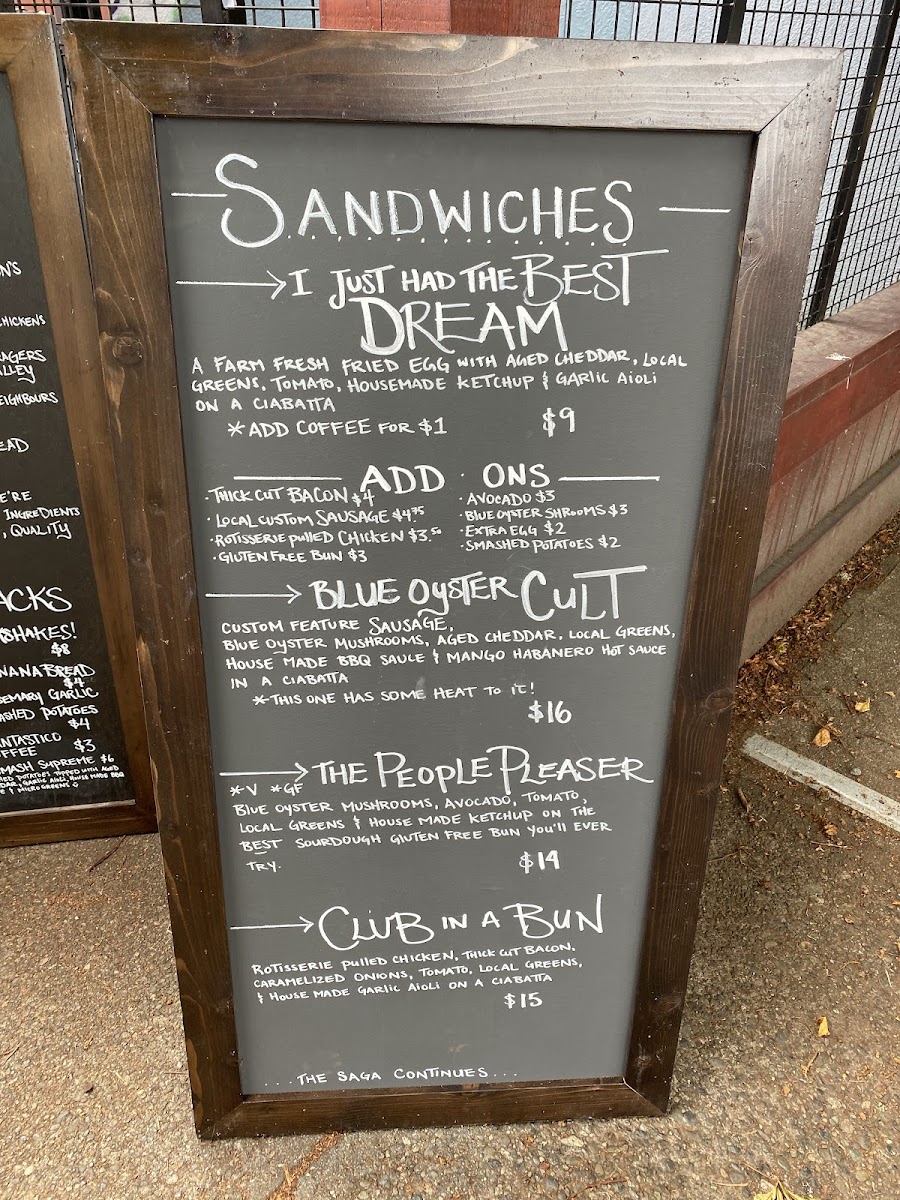 SANDWICHES
I JUST HAD THE BEST
DREAM
A FARM FRESH FRIED EGG WITH AGED CHEDDAR, LOCAL
GREENS, TOMATO, HOUSEMADE KETCHUP & GARLIC AIOLI
ON A CIABATTA
*ADD COFFEE FOR $1
$9
ADD ONS
·THICK CUT BACON $4
·LOCAL CUSTOM SAUSAGE $4.75
·ROTISSERIE PULLED CHICKEN $3.50
·GLUTEN FREE BUN $3
·AVOCADO $3
·BLUE OYSTER SHROOMS $3
·EXTRA EGG $2
·SMASHED POTATOES $2
BLUE OYSTER CULT
CUSTOM FEATURE SAUSAGE,
BLUE OYSTER MUSHROOMS, AGED CHEDDAR, LOCAL GREENS,
HOUSE MADE BBQ SAUCE & MANGO HABANERO HOT SAUCE
IN A CIABATTA
*THIS ONE HAS SOME HEAT TO IT!
$16
THE PEOPLE PLEASER
*V *GF
BLUE OYSTER MUSHROOMS, AVOCADO, TOMATO,
LOCAL GREENS & HOUSE MADE KETCHUP ON THE
BEST SOURDOUGH GLUTEN FREE BUN YOU'LL EVER
TRY.
$14
CLUB IN A BUN
ROTISSERIE PULLED CHICKEN, THICK CUT BACON,
CARAMELIZED ONIONS, TOMATO, LOCAL GREENS,
& HOUSE MADE GARLIC AIOLI ON A CIABATTA
$15
...THE SAGA CONTINUES...
INGREDIENTS
, QUALITY
$8
BREAD
$4
GARLIC
POTATOES
$4
$3
SUPREME $6
POTATOES TOPPED WITH AGED
, GARLIC AIOLI, HOUSE MADE BBQ
& MICRO GREENS